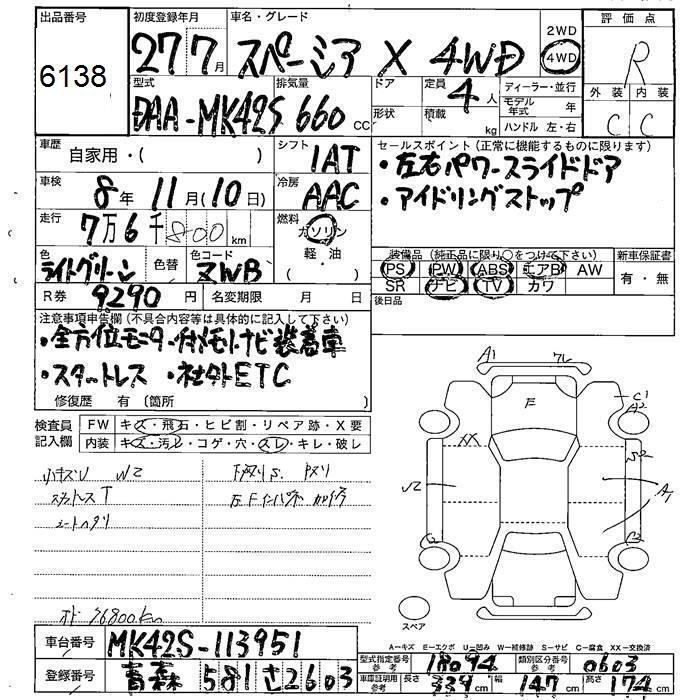 出品番号 初度登録年月 車名・グレード 2WD 評価点
6138 27 7月 スペーシア X 4WD 4WD R
型式 排気量 ドア 定員 ディーラー・並行 外装 内装
DAA-MK42S 660 CC 形状 4人 積載 kg モデル年式 年 C C
ハンドル 左・右
車歴 自家用・( ) シフト 1AT セールスポイント(正常に機能するものに限ります)
・左右パワースライドドア
車検 8年 11月(10日) 冷房 AAC ・アイドリングストップ
走行 7万6千800km 燃料 ガソリン 軽・油 ( )
色 ライトグリーン 色替 色コード ZWB
装備品(純正品に限り○をつけて下さい) 新車保証書
PS PW ABS エアB AW 有・無
SR ナビ TV カワ
R券 9290円 名変期限 月 日 後日品
注意事項申告欄(不具合内容等は具体的に記入して下さい)
・全方位モニター付メモリナビ装着車
・スタットレス ・社外ETC
修復歴 有(箇所 )
検査員記入欄 FW キズ・飛石・ヒビ割・リペア跡・X要
内装 キズ・汚レ・コゲ・穴・スレ・キレ・破レ
小キズU W2
スタットレスT
シートヘタリ
メド 76800km
A1
F
C1
A2
XX
A1
スペア
A-キズ E-エクボ U-凹み W-補修跡 S-サビ C-腐食 XX-交換済
車台番号 MK42S-113951
型式指定番号 参考 18094 類別区分番号 参考 0603
登録番号 青森 581 さ2603
車庫証明用 参考 長さ 339cm 幅 147cm 高さ 174cm